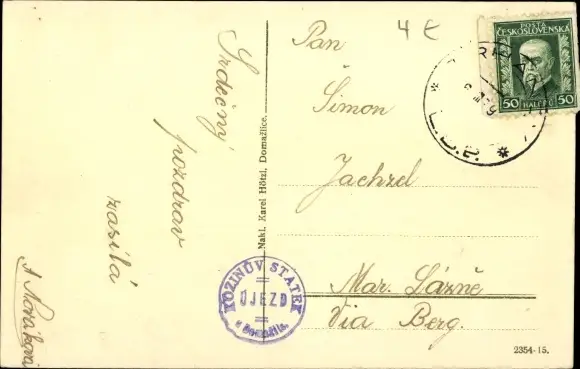 4 €
POSTA
ČESKOSLOVENSKÁ
50 HALÉŘŮ 50
Pan
Šimon
Jachzel
Mar. Lázně
Via Berg.
Srdečný
pozdrav
zasílá
A Nováková
Nakl. Karel Hötzl, Domažlice.
KOZINŮV STATEK
ÚJEZD
u Domažlic
2354-15.